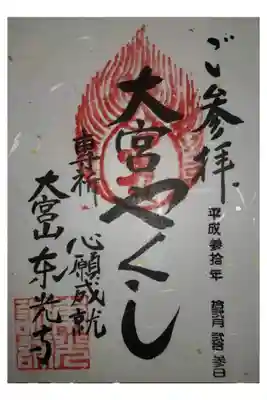 ご参拝
平成参拾年 拾弐月 弐拾参日
大宮やくし
専祈
心願成就
大宮山东光寺